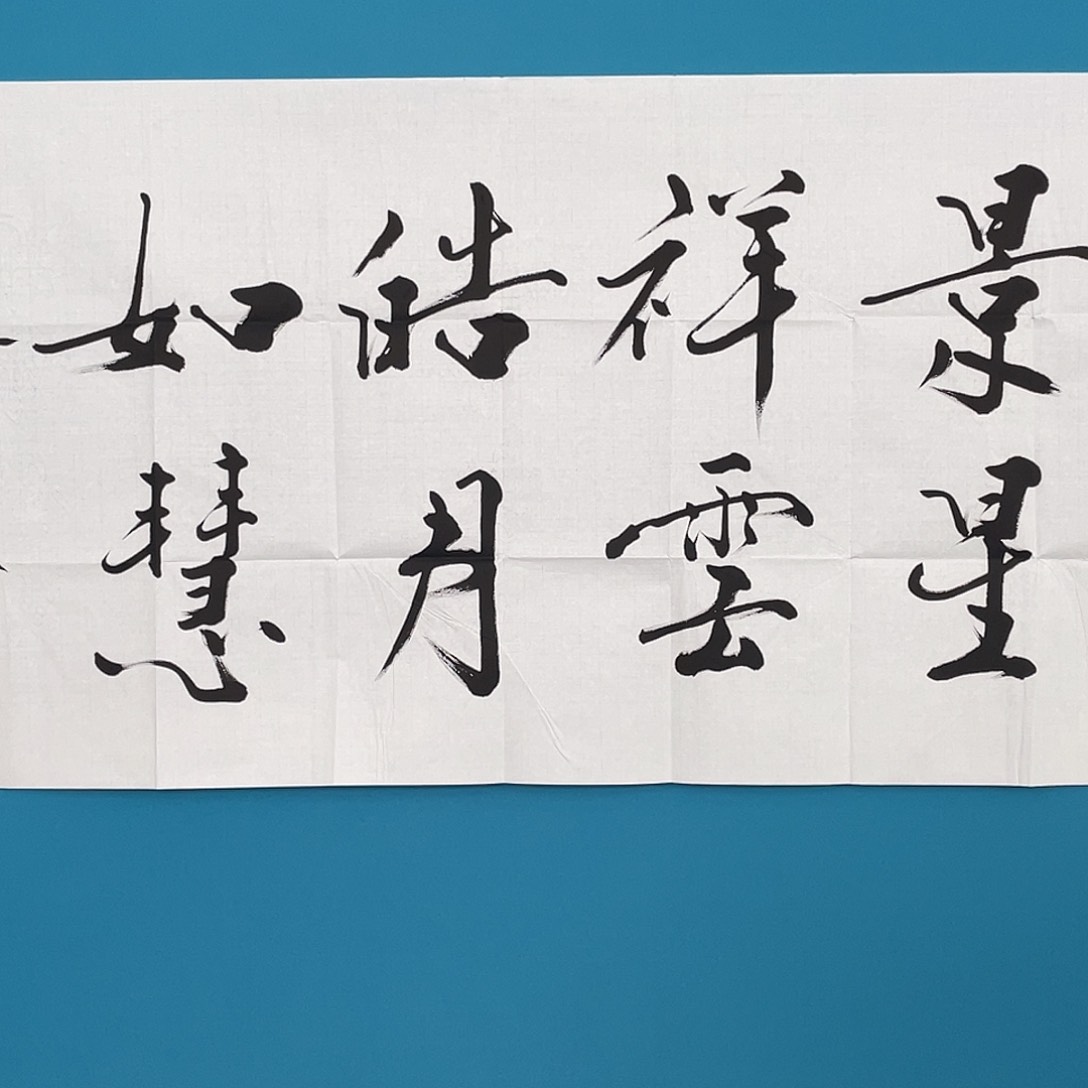 景星
祥雲
皓月
如慧